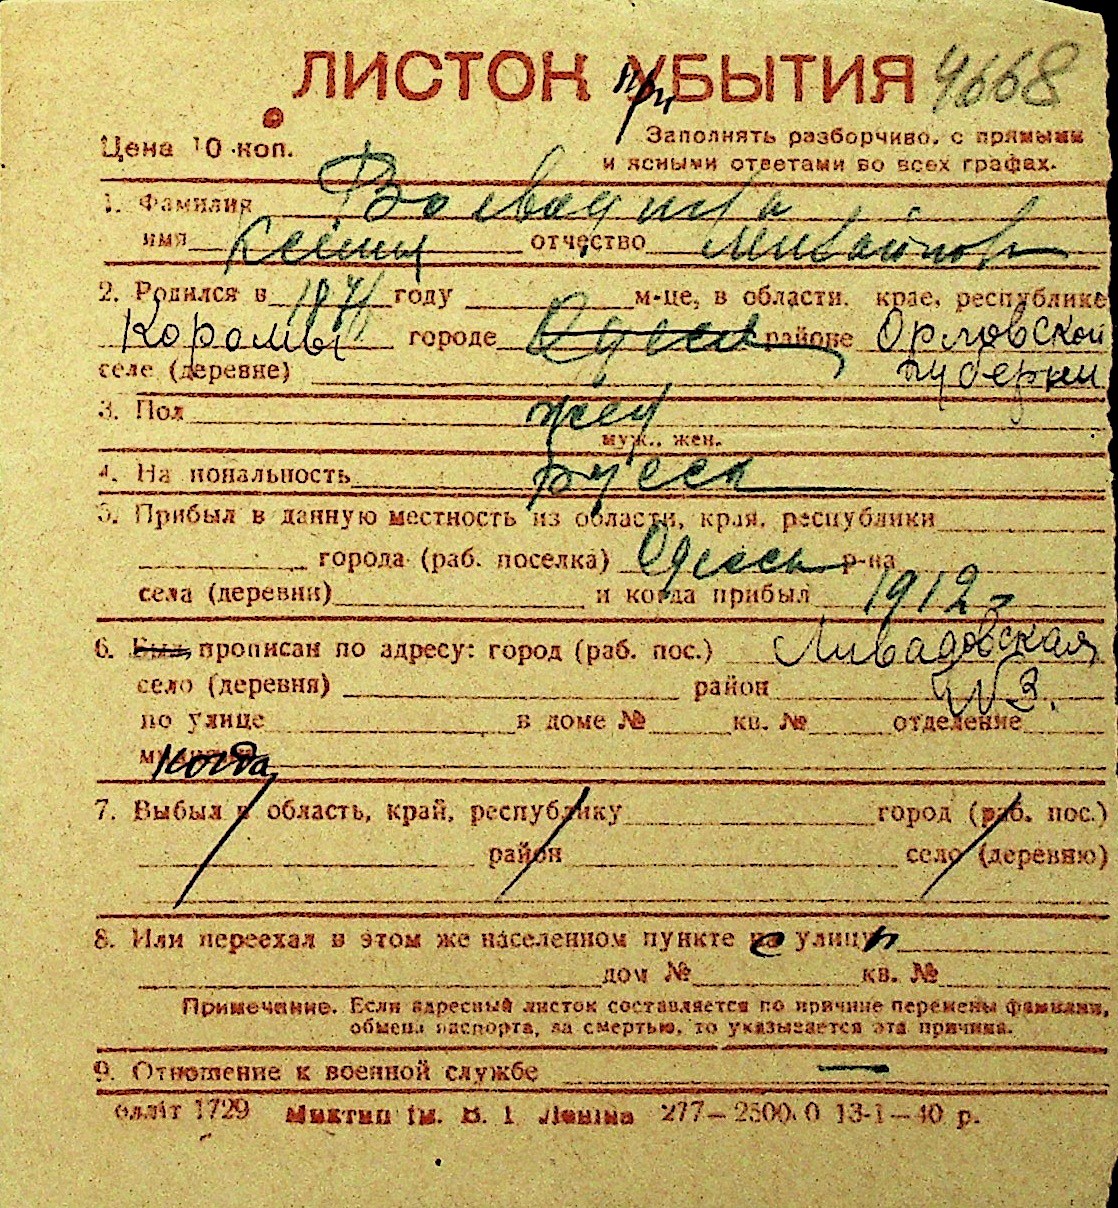 ЛИСТОК УБЫТИЯ 4668
при
Цена 10 коп.
Заполнять разборчиво, с прямыми
и ясными ответами во всех графах.
1. Фамилия
имя отчество
2. Родился в году м-це, в области, крае, республике
городе Одесса районе Орловской
селе (деревне) губернии
3. Пол жен
муж., жен.
4. На иональность русск
5. Прибыл в данную местность из области, края, республики
города (раб. поселка) Одессы р-на
села (деревни) и когда прибыл 1912
6. Был прописан по адресу: город (раб. пос.) Ливадовская
село (деревня) район № 3.
по улице в доме № кв. № отделение
когда
7. Выбыл в область, край, республику город (раб. пос.)
район село (деревню)
8. Или переехал в этом же населенном пункте на улицу
дом № кв. №
Примечание. Если адресный листок составляется по причине перемены фамилии,
обмена паспорта, за смертью, то указывается эта причина.
9. Отношение к военной службе —
олліт 1729 Миктип ім. В. І. Леніна 277—2500.0 13-1—40 р.